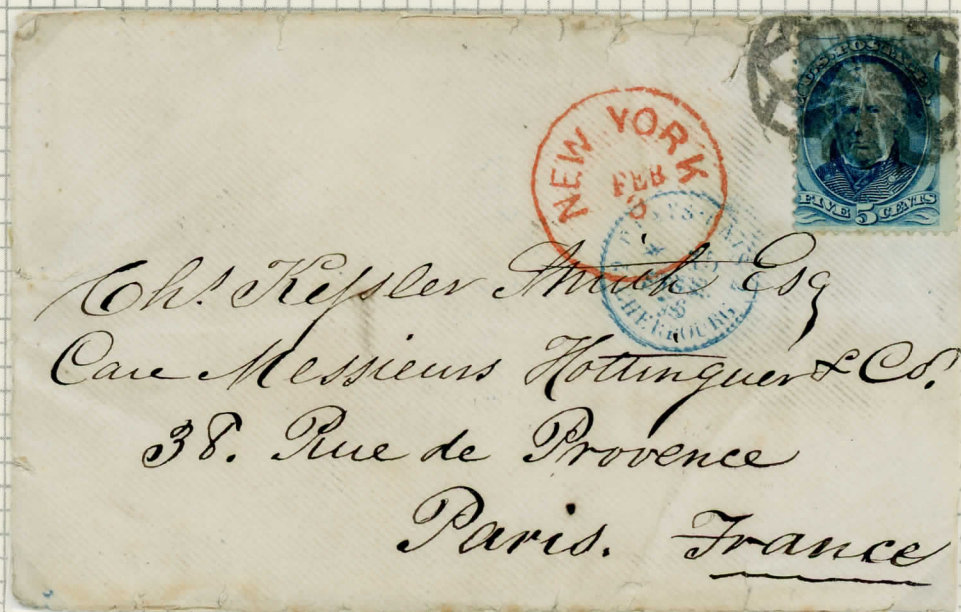 U.S. POSTAGE
FIVE 5 CENTS
NEW YORK
FEB
3
CHERBOURG
Chs. Kessler Smith Esq
Care Messieurs Hottinguer & Co.
38. Rue de Provence
Paris. France